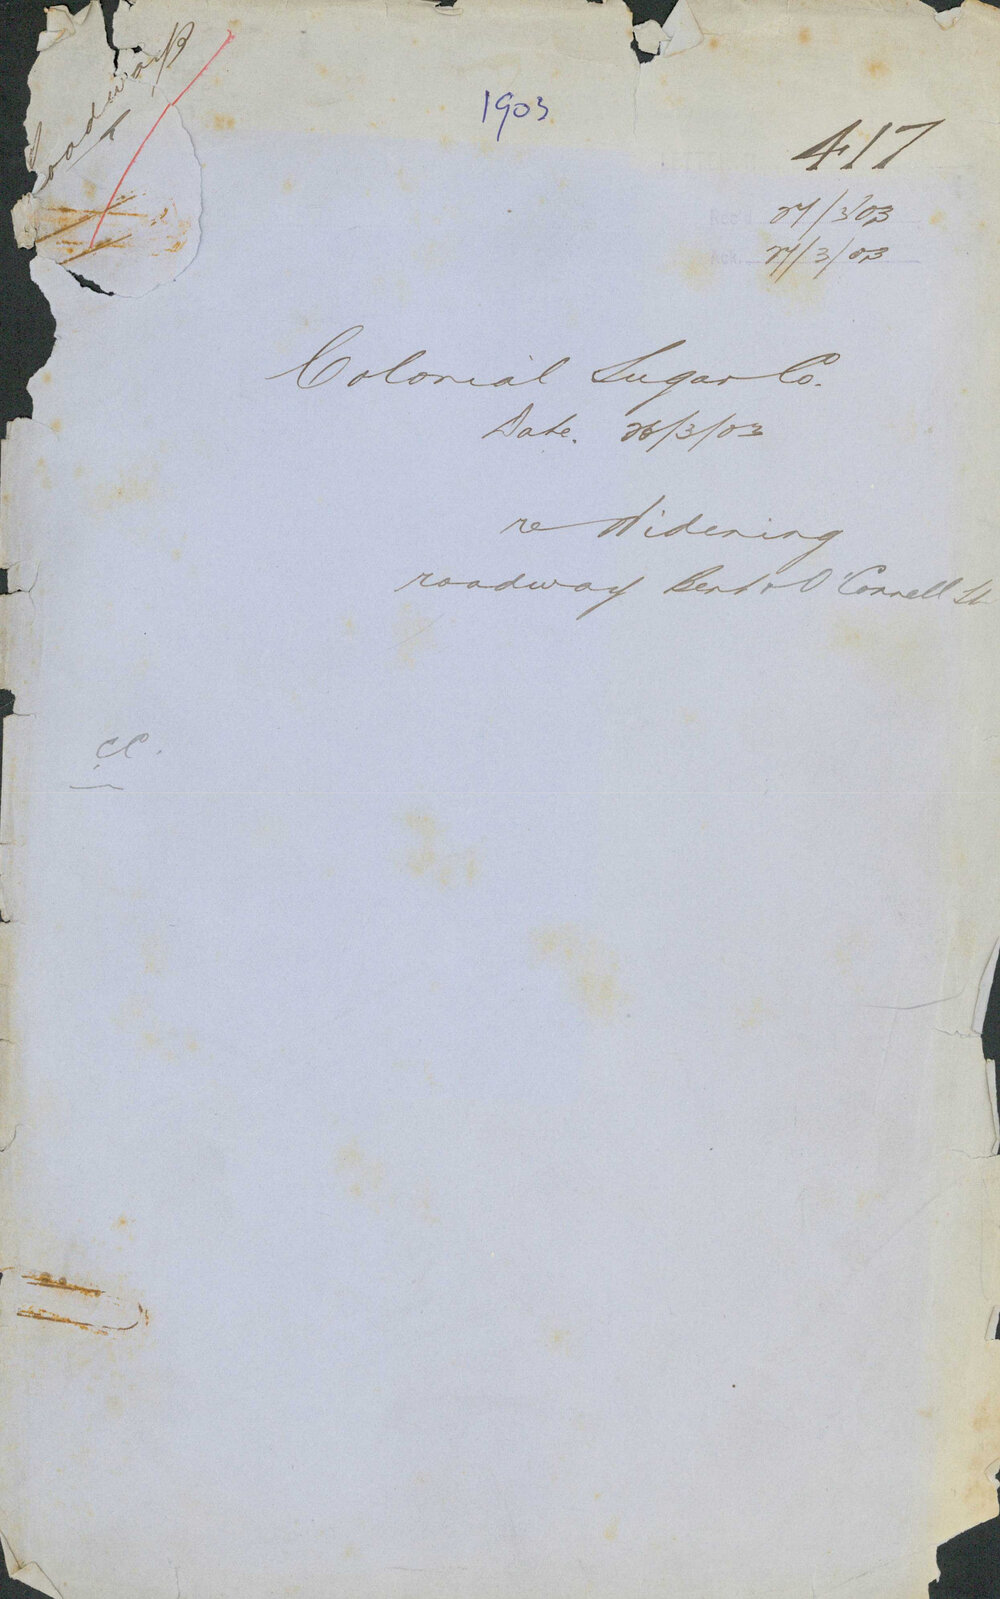 Roadways
1903
417
27/3/03
27/3/03
Colonial Sugar Co.
Date. 26/3/03
re Widening
roadway Bent & O'Connell St
CC.